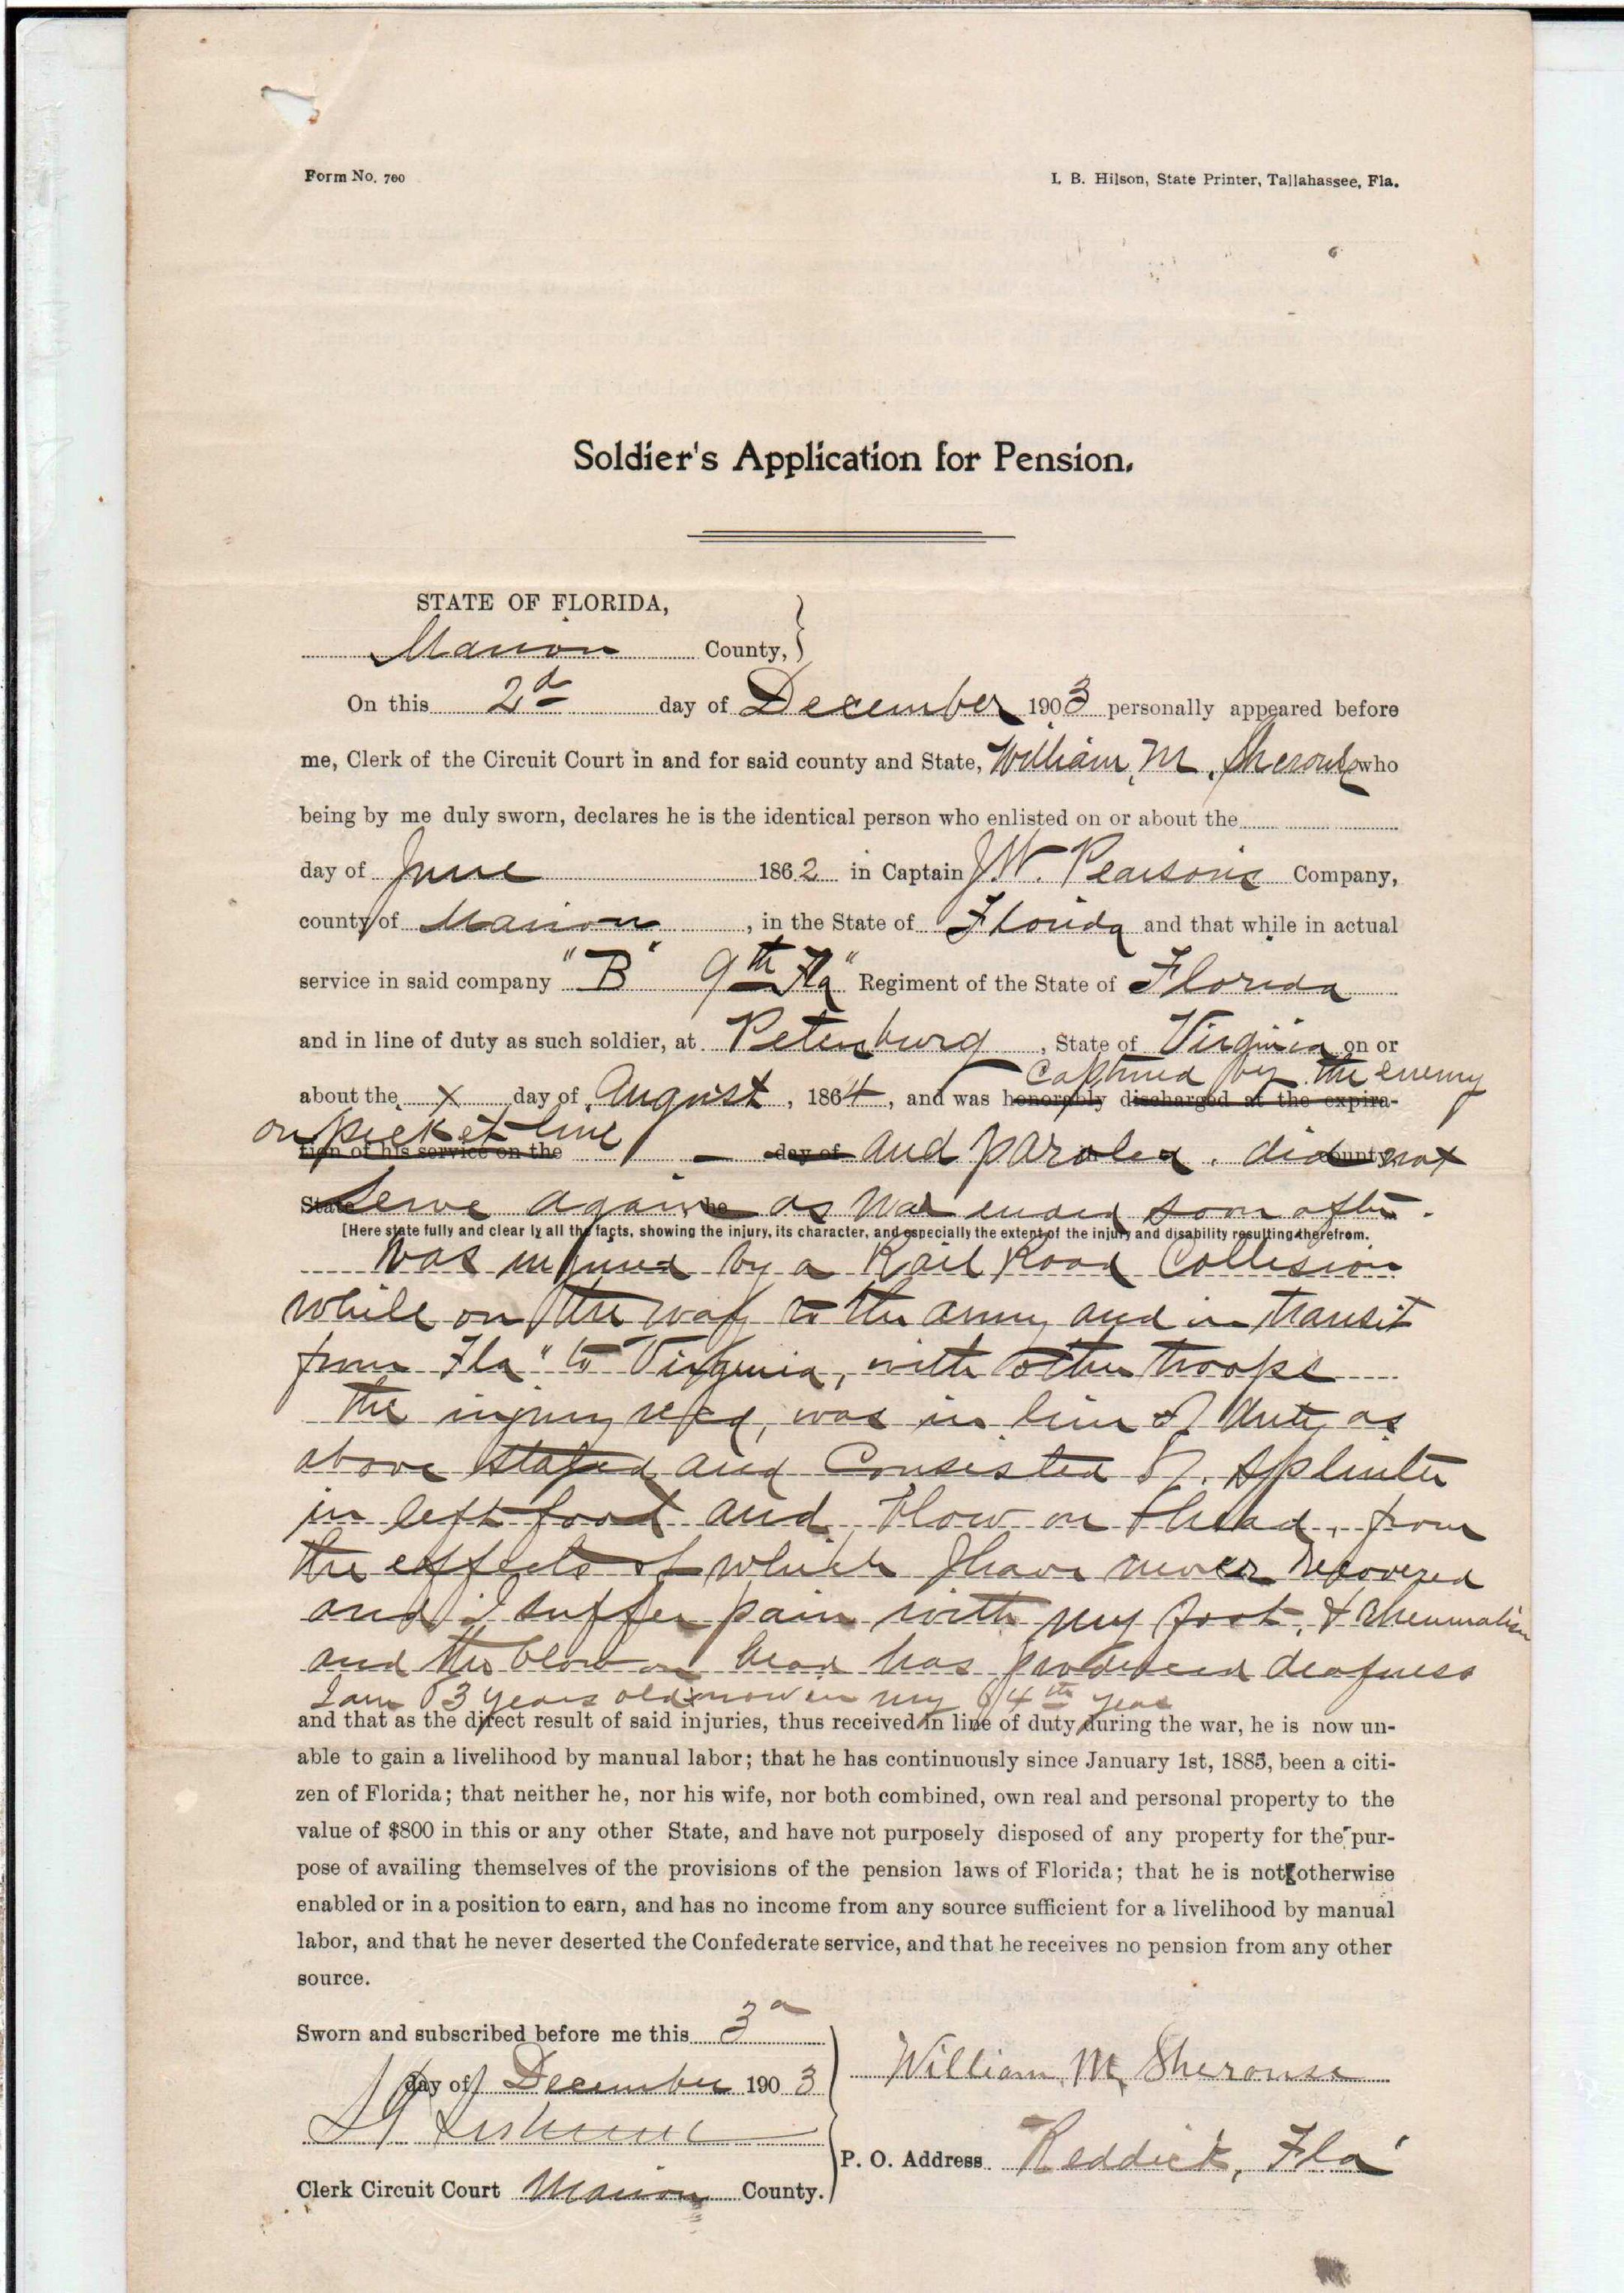 Form No. 700
I. B. Hilson, State Printer, Tallahassee, Fla.
Soldier's Application for Pension.
STATE OF FLORIDA,
Marion County,
On this 2d day of December 1903 personally appeared before
me, Clerk of the Circuit Court in and for said county and State, William, M, Sherouse who
being by me duly sworn, declares he is the identical person who enlisted on or about the
day of June 1862 in Captain J.W. Pearson's Company,
county of Marion, in the State of Florida and that while in actual
service in said company "B" 9th Fla" Regiment of the State of Florida
and in line of duty as such soldier, at Petersburg, State of Virginia on or
captured by the enemy
about the x day of August, 1864, and was honorably discharged at the expira-
on picket line
tion of his service on the day of and paroled. did not county
State serve again he as war ended soon after.
[Here state fully and clearly all the facts, showing the injury, its character, and especially the extent of the injury and disability resulting therefrom.
was injured by a Rail Road Collision
while on the way to the army and in transit
from Fla" to Virginia, with other troops
the injury recd, was in line of duty as
above stated and Consisted of. splinter
in left foot and blow on head, from
the effects of which I have never recovered
and I suffer pain with my foot, & Rheumatism
and the blow on head has produced deafness
I am 83 years old now in my 84th year
and that as the direct result of said injuries, thus received in line of duty during the war, he is now un-
able to gain a livelihood by manual labor; that he has continuously since January 1st, 1885, been a citi-
zen of Florida; that neither he, nor his wife, nor both combined, own real and personal property to the
value of $800 in this or any other State, and have not purposely disposed of any property for the pur-
pose of availing themselves of the provisions of the pension laws of Florida; that he is not otherwise
enabled or in a position to earn, and has no income from any source sufficient for a livelihood by manual
labor, and that he never deserted the Confederate service, and that he receives no pension from any other
source.
Sworn and subscribed before me this 3d
day of December 1903
William, M, Sherouse
P. O. Address Reddick, Fla
Clerk Circuit Court Marion County.